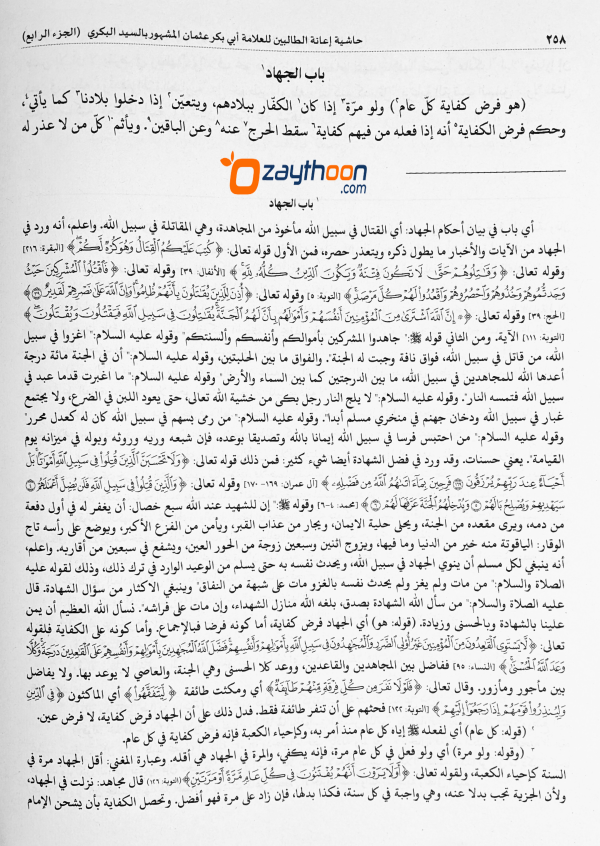 ٢٥٨ حاشية إعانة الطالبين للعلامة أبي بكر عثمان المشهور بالسيد البكري (الجزء الرابع)
باب الجهاد١
(هو فرض كفاية كلّ عام٢) ولو مرّة٣ إذا كان الكفّار ببلادهم، ويتعيّن إذا دخلوا بلادنا كما يأتي،
وحكم فرض الكفاية أنه إذا فعله من فيهم كفاية سقط الحرج عنه وعن الباقين. ويأثم كلّ من لا عذر له
Ozaythoon
.com
١ باب الجهاد
أي باب في بيان أحكام الجهاد: أي القتال في سبيل الله مأخوذ من المجاهدة، وهي المقاتلة في سبيل الله. واعلم، أنه ورد في
الجهاد من الآيات والأخبار ما يطول ذكره ويتعذر حصره، فمن الأول قوله تعالى: ﴿كُتِبَ عَلَيْكُمُ الْقِتَالُ وَهُوَ كُرْهٌ لَّكُمْ﴾ [البقرة: ٢١٦]
وقوله تعالى: ﴿وَقَاتِلُوهُمْ حَتَّى لَا تَكُونَ فِتْنَةٌ وَيَكُونَ الدِّينُ كُلُّهُ لِلَّهِ﴾ [الأنفال: ٣٩] وقوله تعالى: ﴿فَاقْتُلُوا الْمُشْرِكِينَ حَيْثُ
وَجَدتُّمُوهُمْ وَخُذُوهُمْ وَاحْصُرُوهُمْ وَاقْعُدُوا لَهُمْ كُلَّ مَرْصَدٍ﴾ [التوبة: ٥] وقوله تعالى: ﴿أُذِنَ لِلَّذِينَ يُقَاتَلُونَ بِأَنَّهُمْ ظُلِمُوا وَإِنَّ اللَّهَ عَلَى نَصْرِهِمْ لَقَدِيرٌ﴾
[الحج: ٣٩] وقوله تعالى: ﴿إِنَّ اللَّهَ اشْتَرَى مِنَ الْمُؤْمِنِينَ أَنفُسَهُمْ وَأَمْوَالَهُم بِأَنَّ لَهُمُ الْجَنَّةَ يُقَاتِلُونَ فِي سَبِيلِ اللَّهِ فَيَقْتُلُونَ وَيُقْتَلُونَ﴾
[التوبة: ١١١] الآية. ومن الثاني قوله ﷺ:" جاهدوا المشركين بأموالكم وأنفسكم وألسنتكم" وقوله عليه السلام:" اغزوا في سبيل
الله، من قاتل في سبيل الله، فواق نافة وجبت له الجنة". والفواق ما بين الحلبتين، وقوله عليه السلام:" أن في الجنة مائة درجة
أعدها الله للمجاهدين في سبيل الله، ما بين الدرجتين كما بين السماء والأرض" وقوله عليه السلام:" ما اغبرت قدما عبد في
سبيل الله فتمسه النار". وقوله عليه السلام:" لا يلج النار رجل بكى من خشية الله تعالى، حتى يعود اللبن في الضرع، ولا يجتمع
غبار في سبيل الله ودخان جهنم في منخري مسلم أبدا". وقوله عليه السلام:" من رمى بسهم في سبيل الله كان له كعدل محرر"
وقوله عليه السلام:" من احتبس فرسا في سبيل الله إيمانا بالله وتصديقا بوعده، فإن شبعه وريه وروثه وبوله في ميزانه يوم
القيامة". يعني حسنات. وقد ورد في فضل الشهادة أيضا شيء كثير: فمن ذلك قوله تعالى: ﴿وَلَا تَحْسَبَنَّ الَّذِينَ قُتِلُوا فِي سَبِيلِ اللَّهِ أَمْوَاتًا بَلْ
أَحْيَاءٌ عِندَ رَبِّهِمْ يُرْزَقُونَ فَرِحِينَ بِمَا آتَاهُمُ اللَّهُ مِن فَضْلِهِ﴾ [آل عمران: ١٦٩-١٧٠] وقوله تعالى: ﴿وَالَّذِينَ قُتِلُوا فِي سَبِيلِ اللَّهِ فَلَن يُضِلَّ أَعْمَالَهُمْ
سَيَهْدِيهِمْ وَيُصْلِحُ بَالَهُمْ وَيُدْخِلُهُمُ الْجَنَّةَ عَرَّفَهَا لَهُمْ﴾ [محمد: ٤-٦] وقوله ﷺ:" إن للشهيد عند الله سبع خصال: أن يغفر له في أول دفعة
من دمه، ويرى مقعده من الجنة، ويحلى حلية الايمان، ويجار من عذاب القبر، ويأمن من الفزع الأكبر، ويوضع على رأسه تاج
الوقار: الياقوتة منه خير من الدنيا وما فيها، ويزوج اثنين وسبعين زوجة من الحور العين، ويشفع في سبعين من أقاربه. واعلم،
أنه ينبغي لكل مسلم أن ينوي الجهاد في سبيل الله، ويحدث نفسه به حتى يسلم من الوعيد الوارد في ترك ذلك، وذلك لقوله عليه
الصلاة والسلام:" من مات ولم يغز ولم يحدث نفسه بالغزو مات على شبهة من النفاق" وينبغي الاكثار من سؤال الشهادة. قال
عليه الصلاة والسلام:" من سأل الله الشهادة بصدق، بلغه الله منازل الشهداء، وإن مات على فراشه". نسأل الله العظيم أن يمن
علينا بالشهادة وبالحسنى وزيادة. (قوله: هو) أي الجهاد فرض كفاية، أما كونه فرضا فبالإجماع. وأما كونه على الكفاية فلقوله
تعالى: ﴿لَّا يَسْتَوِي الْقَاعِدُونَ مِنَ الْمُؤْمِنِينَ غَيْرُ أُولِي الضَّرَرِ وَالْمُجَاهِدُونَ فِي سَبِيلِ اللَّهِ بِأَمْوَالِهِمْ وَأَنفُسِهِمْ فَضَّلَ اللَّهُ الْمُجَاهِدِينَ بِأَمْوَالِهِمْ وَأَنفُسِهِمْ عَلَى الْقَاعِدِينَ دَرَجَةً وَكُلًّا
وَعَدَ اللَّهُ الْحُسْنَى﴾ [النساء: ٩٥] ففاضل بين المجاهدين والقاعدين، ووعد كلا الحسنى وهي الجنة، والعاصي لا يوعد بها. ولا يفاضل
بين مأجور ومأزور. وقال تعالى: ﴿فَلَوْلَا نَفَرَ مِن كُلِّ فِرْقَةٍ مِّنْهُمْ طَائِفَةٌ﴾ أي ومكثت طائفة ﴿لِّيَتَفَقَّهُوا﴾ أي الماكثون ﴿فِي الدِّينِ
وَلِيُنذِرُوا قَوْمَهُمْ إِذَا رَجَعُوا إِلَيْهِمْ﴾ [التوبة: ١٢٢] فحثهم على أن تنفر طائفة فقط. فدل ذلك على أن الجهاد فرض كفاية، لا فرض عين.
٢ (قوله: كل عام) أي لفعله ﷺ إياه كل عام منذ أمر به، وكإحياء الكعبة فإنه فرض كفاية في كل عام.
٣ (وقوله: ولو مرة) أي ولو فعل في كل عام مرة، فإنه يكفي، والمرة في الجهاد هي أقله. وعبارة المغني: أقل الجهاد مرة في
السنة كإحياء الكعبة، ولقوله تعالى: ﴿أَوَلَا يَرَوْنَ أَنَّهُمْ يُفْتَنُونَ فِي كُلِّ عَامٍ مَّرَّةً أَوْ مَرَّتَيْنِ﴾ [التوبة: ١٢٦] قال مجاهد: نزلت في الجهاد،
ولأن الجزية تجب بدلا عنه، وهي واجبة في كل سنة، فكذا بدلها، فإن زاد على مرة فهو أفضل. وتحصل الكفاية بأن يشحن الإمام